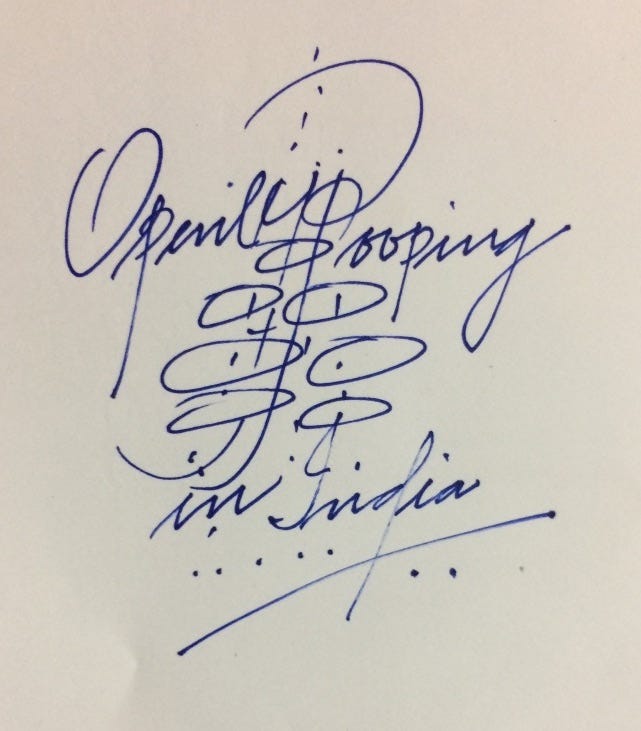 Openly Pooping
in India